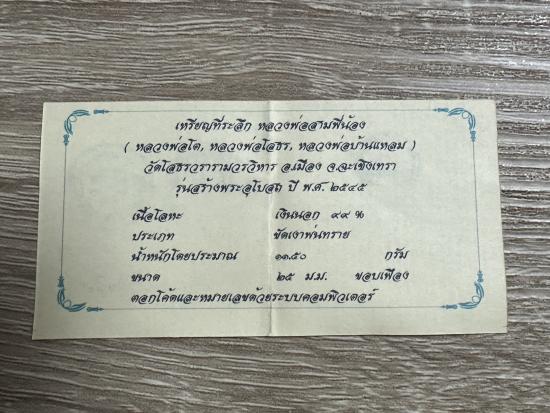 เหรียญที่ระลึก หลวงพ่อสามพี่น้อง
( หลวงพ่อโต, หลวงพ่อโสธร, หลวงพ่อบ้านแหลม )
วัดโสธรวรารามวรวิหาร อ.เมือง จ.ฉะเชิงเทรา
รุ่นสร้างพระอุโบสถ ปี พ.ศ. ๒๕๔๕
เนื้อโลหะ เงินนอก ๙๙ %
ประเภท ขัดเงาพ่นทราย
น้ำหนักโดยประมาณ ๑๑.๕๐ กรัม
ขนาด ๒๕ ม.ม. ขอบเฟือง
ตอกโค้ดและหมายเลขด้วยระบบคอมพิวเตอร์